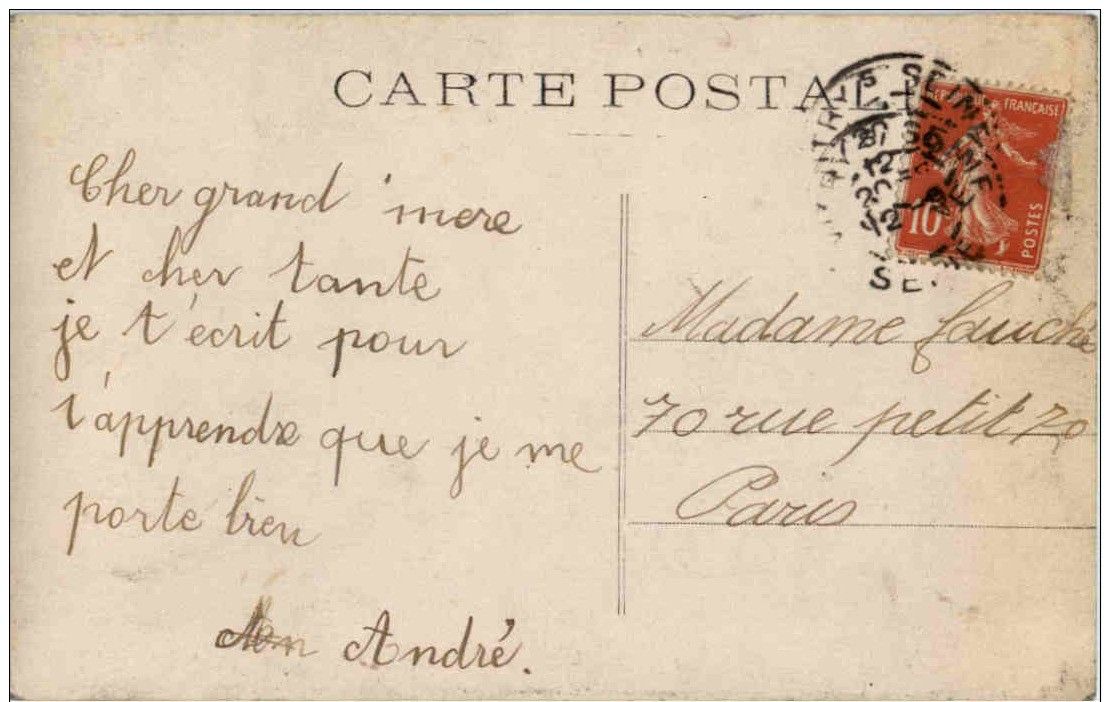 CARTE POSTALE
Cher grand mere
et cher tante
je t'écrit pour
t'apprendre que je me
porte bien
André.
RÉPUBLIQUE FRANÇAISE
10
POSTES
SEINE
SE.
Madame Fauché
70 rue petit 70
Paris